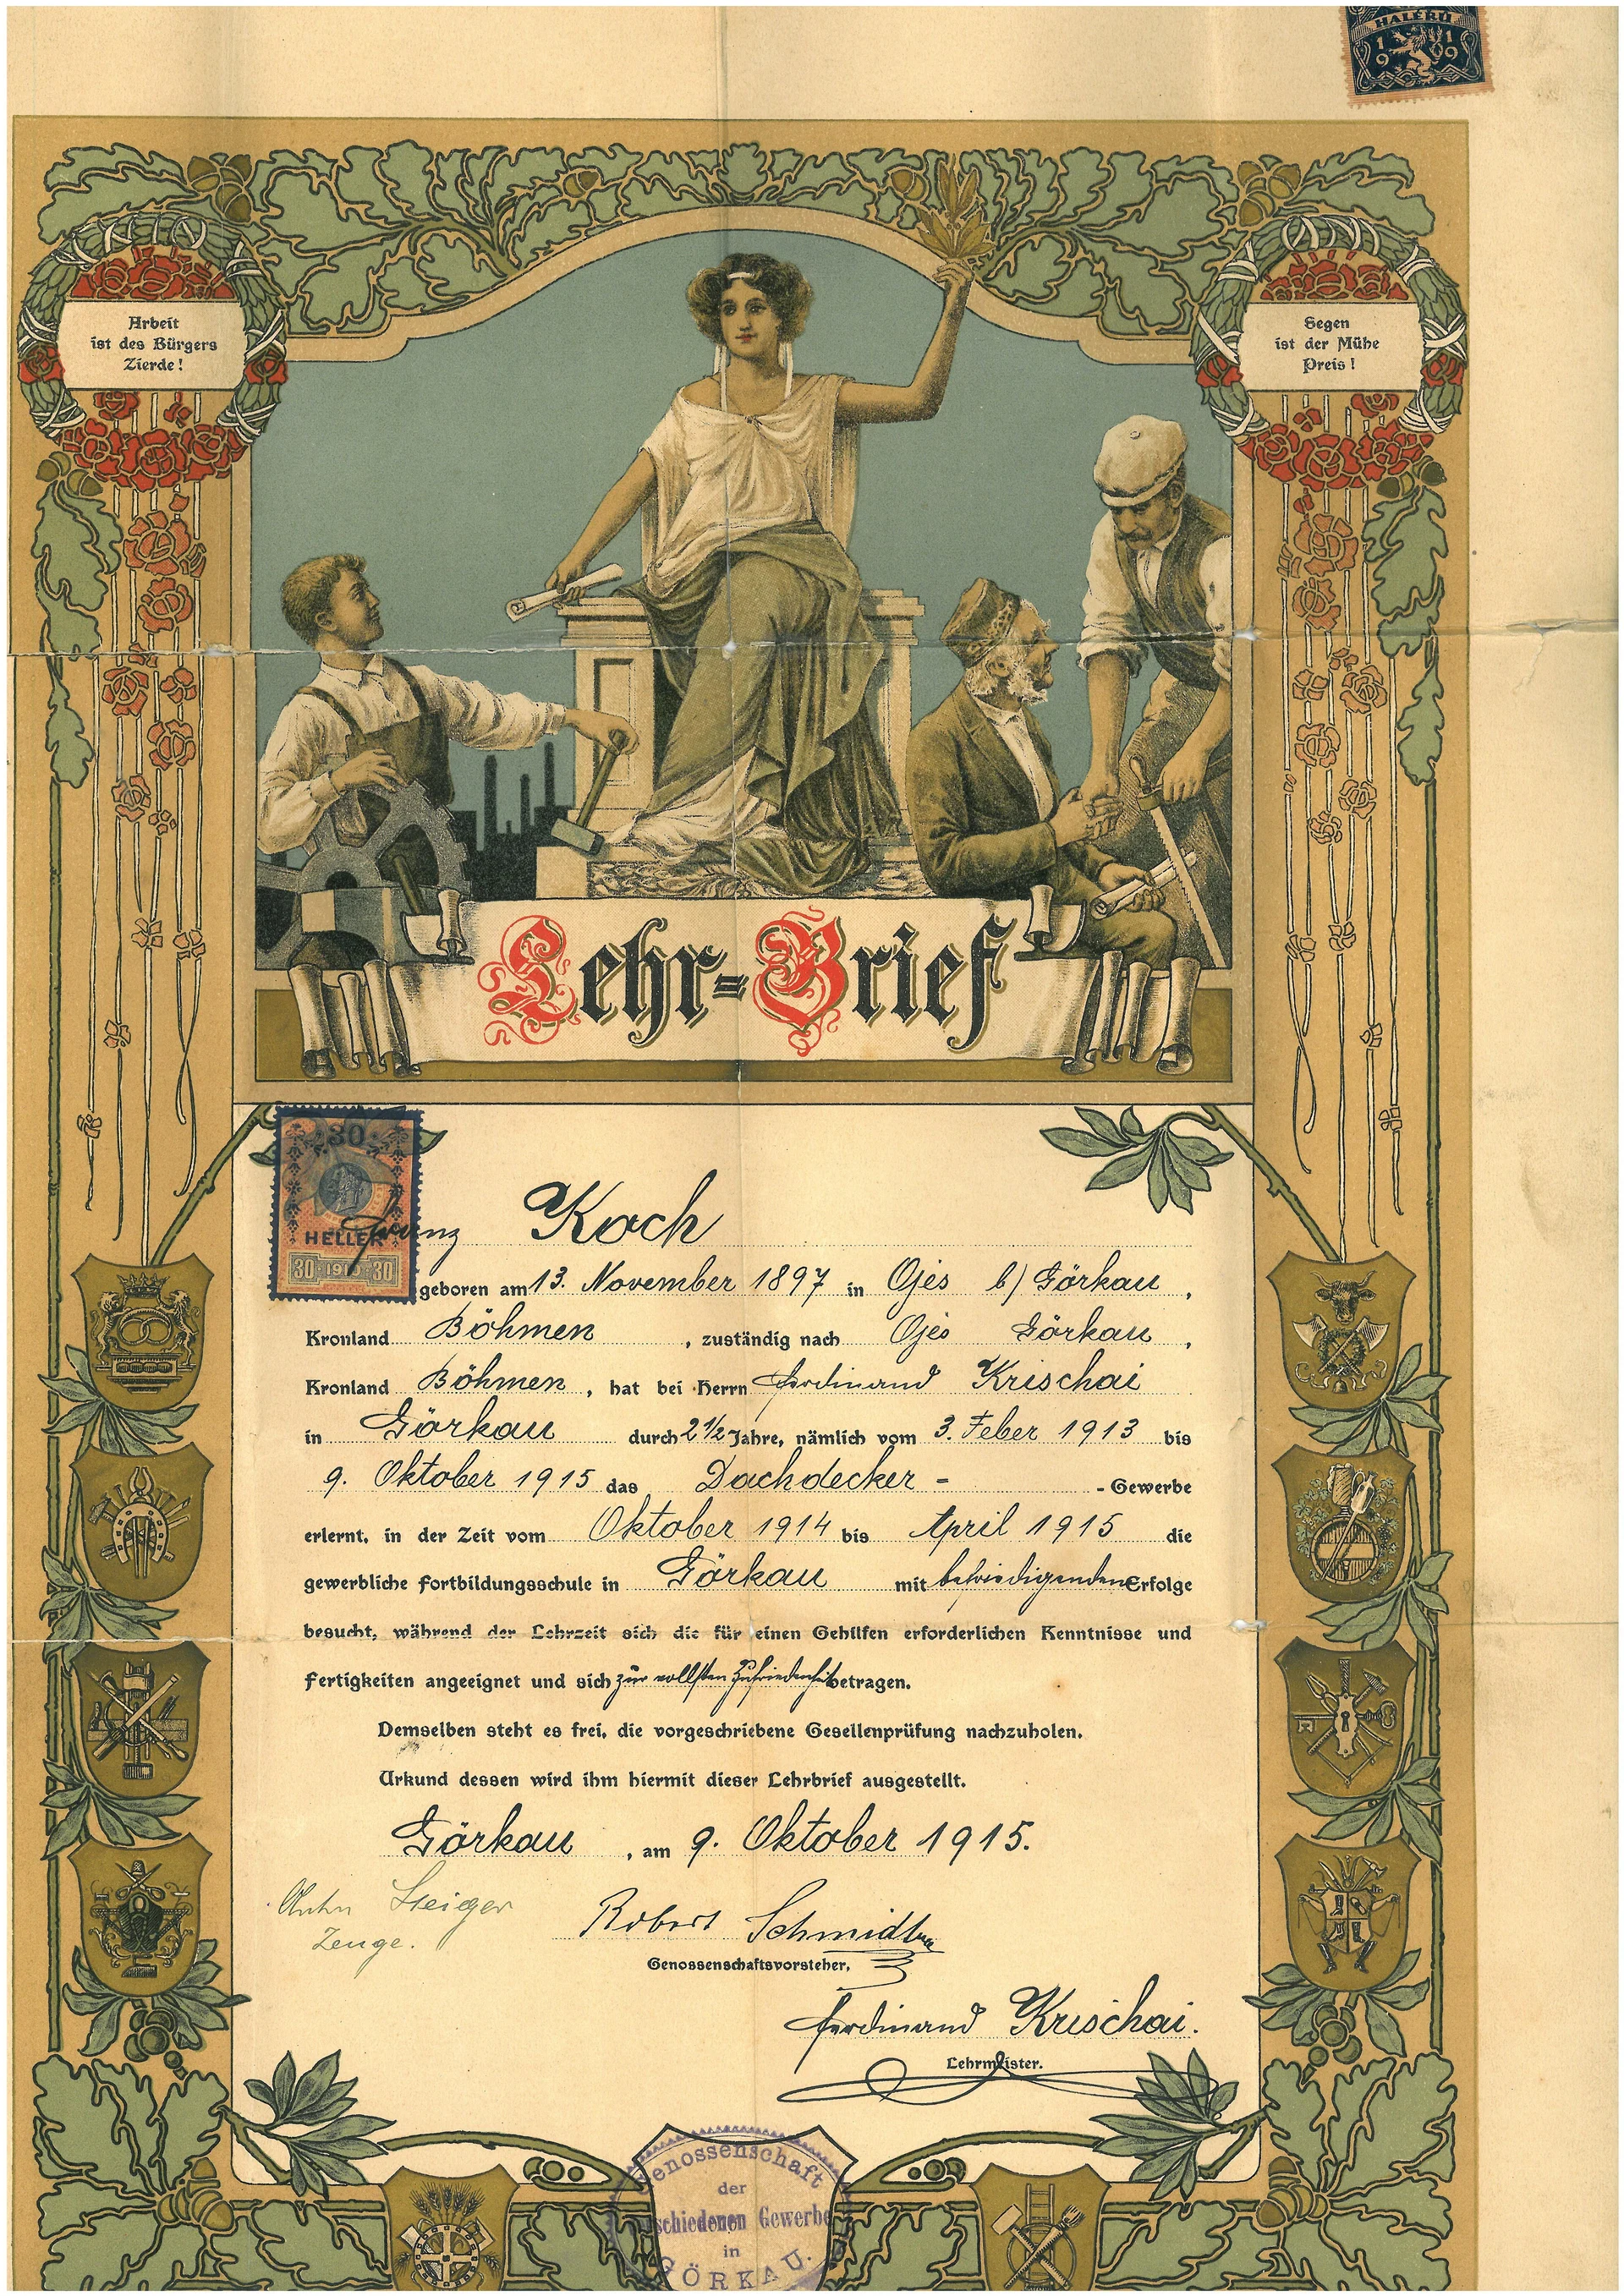 HALERU
1919
Arbeit
ist des Bürgers
Zierde!
Segen
ist der Mühe
Preis!
Lehr=Brief
30
HELLER
30 1910 30
Franz Koch
geboren am 13. November 1897 in Ojes b/ Görkau,
Kronland Böhmen, zuständig nach Ojes Görkau,
Kronland Böhmen, hat bei Herrn Ferdinand Krischai
in Görkau durch 2 1/2 Jahre, nämlich vom 3. Feber 1913 bis
9. Oktober 1915 das Dachdecker - - Gewerbe
erlernt, in der Zeit vom Oktober 1914 bis April 1915 die
gewerbliche Fortbildungsschule in Görkau mit befriedigenden Erfolge
besucht, während der Lehrzeit sich die für einen Gehilfen erforderlichen Kenntnisse und
Fertigkeiten angeeignet und sich zur vollsten Zufriedenheit betragen.
Demselben steht es frei, die vorgeschriebene Gesellenprüfung nachzuholen.
Urkund dessen wird ihm hiermit dieser Lehrbrief ausgestellt.
Görkau, am 9. Oktober 1915.
Steiger
Zeuge.
Robert Schmidt
Genossenschaftsvorsteher,
Ferdinand Krischai.
Lehrmeister.
Genossenschaft
der
schiedenen Gewerbe
in
GÖRKAU.